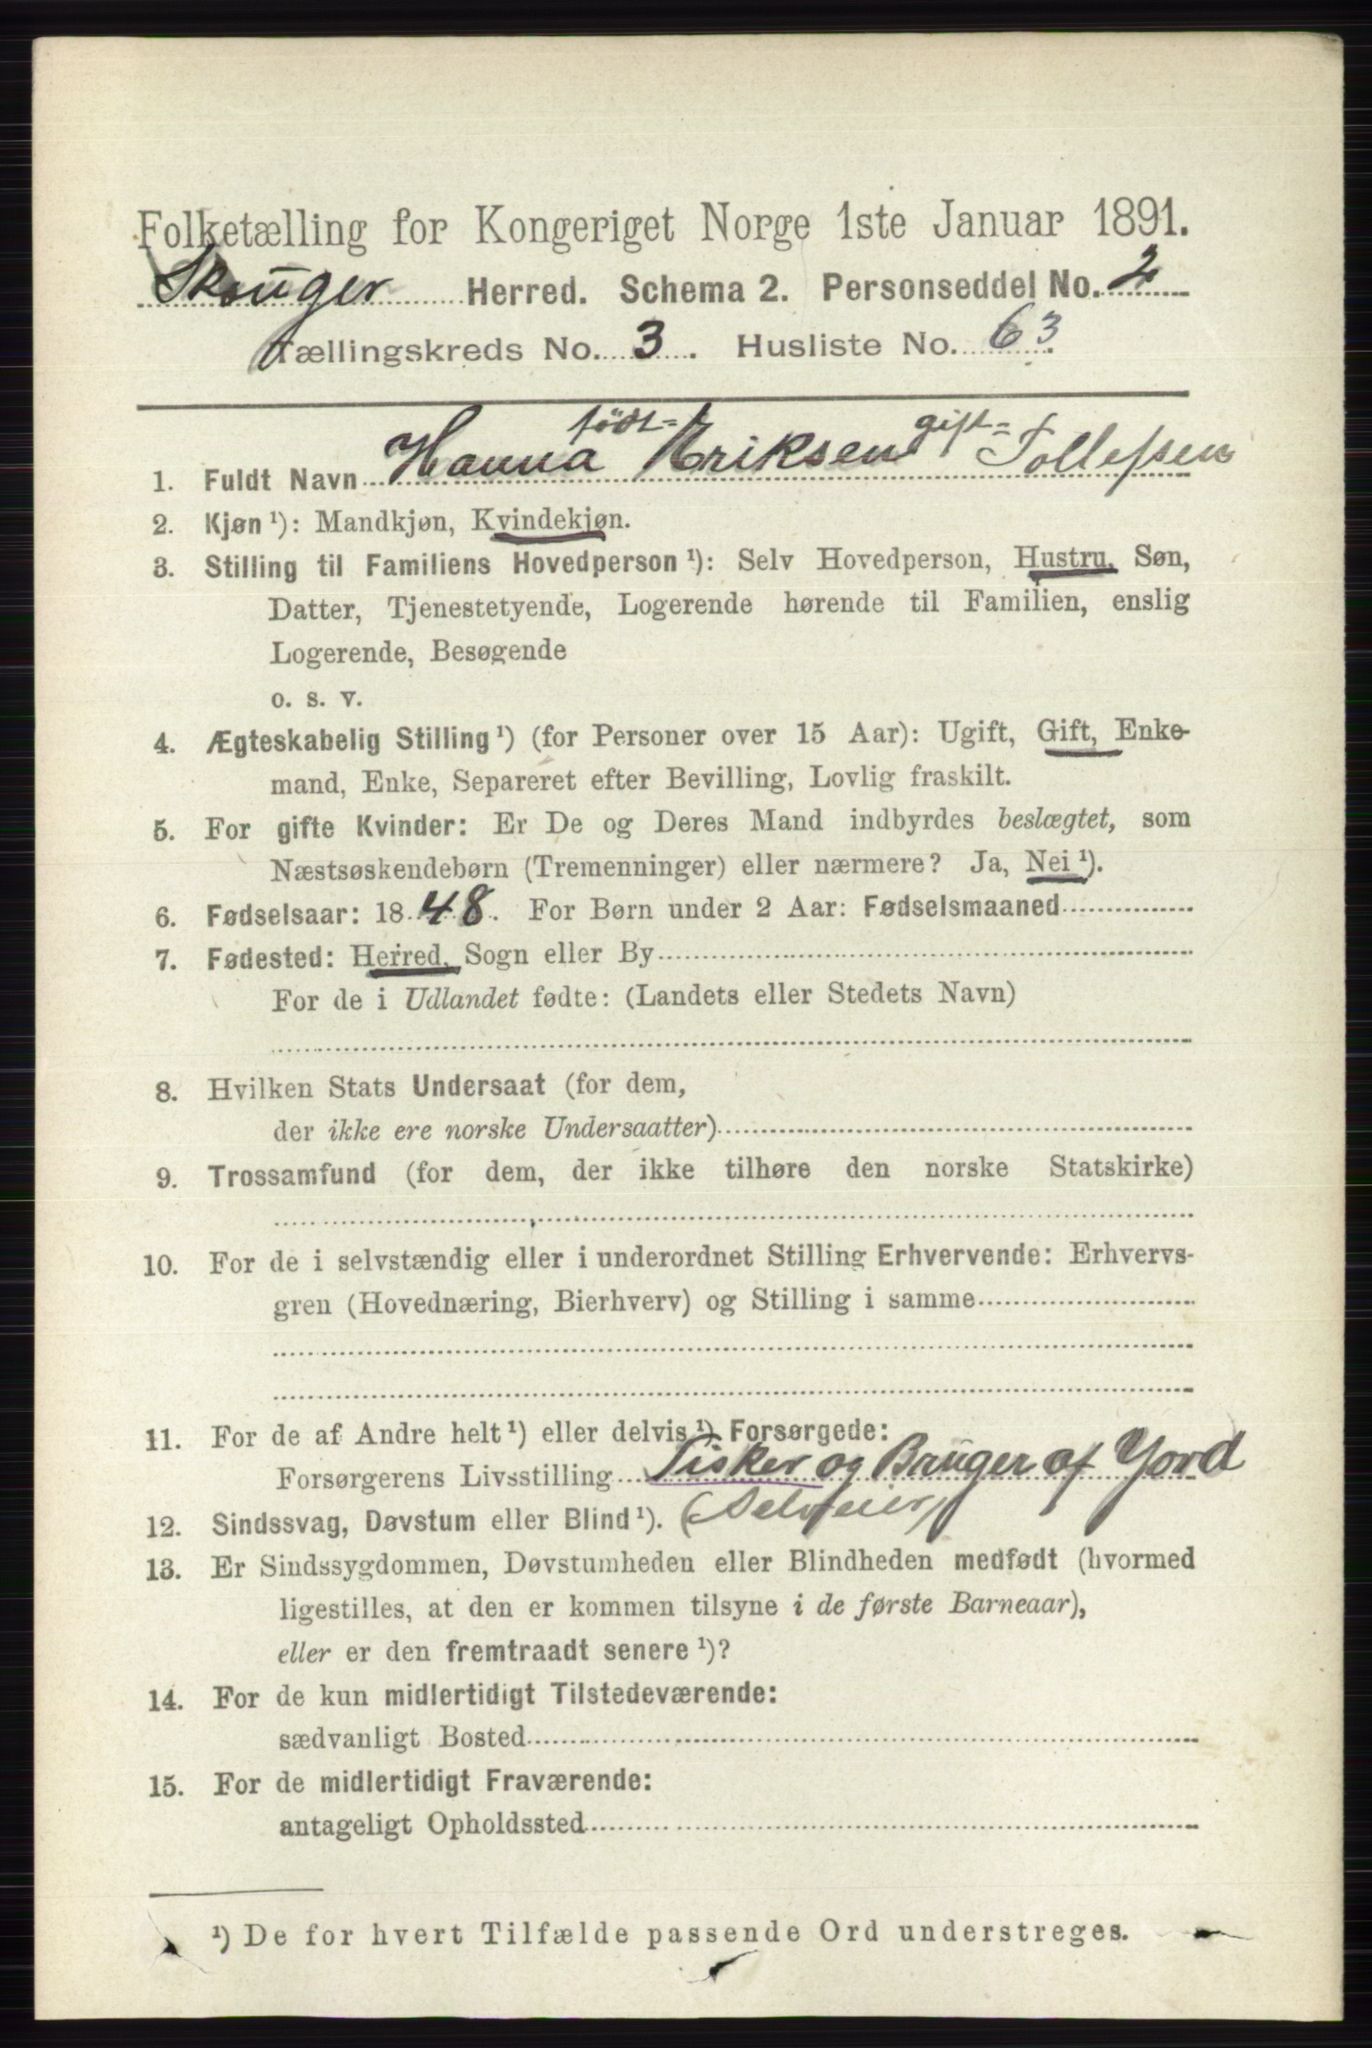 Folketælling for Kongeriget Norge 1ste Januar 1891.
Skouger Herred. Schema 2. Personseddel No. 2
Tællingskreds No. 3. Husliste No. 63.
født= gift=
1. Fuldt Navn Hanna Eriksen Tollefsen
2. Kjøn ¹): Mandkjøn, Kvindekjøn.
3. Stilling til Familiens Hovedperson ¹): Selv Hovedperson, Hustru, Søn,
Datter, Tjenestetyende, Logerende hørende til Familien, enslig
Logerende, Besøgende
o. s. v.
4. Ægteskabelig Stilling ¹) (for Personer over 15 Aar): Ugift, Gift, Enke-
mand, Enke, Separeret efter Bevilling, Lovlig fraskilt.
5. For gifte Kvinder: Er De og Deres Mand indbyrdes beslægtet, som
Næstsøskendebørn (Tremenninger) eller nærmere? Ja, Nei ¹).
6. Fødselsaar: 1848. For Børn under 2 Aar: Fødselsmaaned
7. Fødested: Herred, Sogn eller By
For de i Udlandet fødte: (Landets eller Stedets Navn)
8. Hvilken Stats Undersaat (for dem,
der ikke ere norske Undersaatter)
9. Trossamfund (for dem, der ikke tilhøre den norske Statskirke)
10. For de i selvstændig eller i underordnet Stilling Erhvervende: Erhvervs-
gren (Hovednæring, Bierhverv) og Stilling i samme
11. For de af Andre helt ¹) eller delvis ¹) Forsørgede:
Forsørgerens Livsstilling Fisker og Bruger af Jord
12. Sindssvag, Døvstum eller Blind ¹). (Selveier)
13. Er Sindssygdommen, Døvstumheden eller Blindheden medfødt (hvormed
ligestilles, at den er kommen tilsyne i de første Barneaar),
eller er den fremtraadt senere ¹)?
14. For de kun midlertidigt Tilstedeværende:
sædvanligt Bosted
15. For de midlertidigt Fraværende:
antageligt Opholdssted
¹) De for hvert Tilfælde passende Ord understreges.